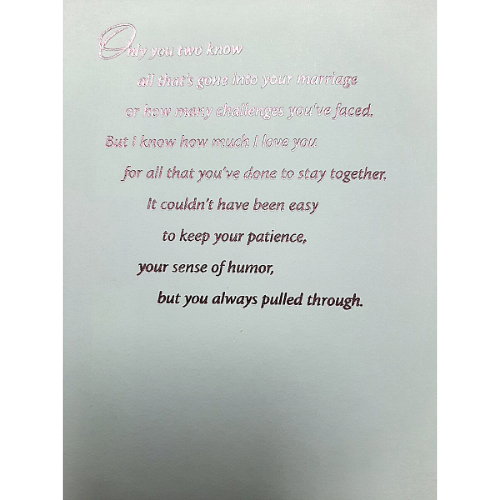 Only you two know
all that's gone into your marriage
or how many challenges you've faced.
But I know how much I love you
for all that you've done to stay together.
It couldn't have been easy
to keep your patience,
your sense of humor,
but you always pulled through.